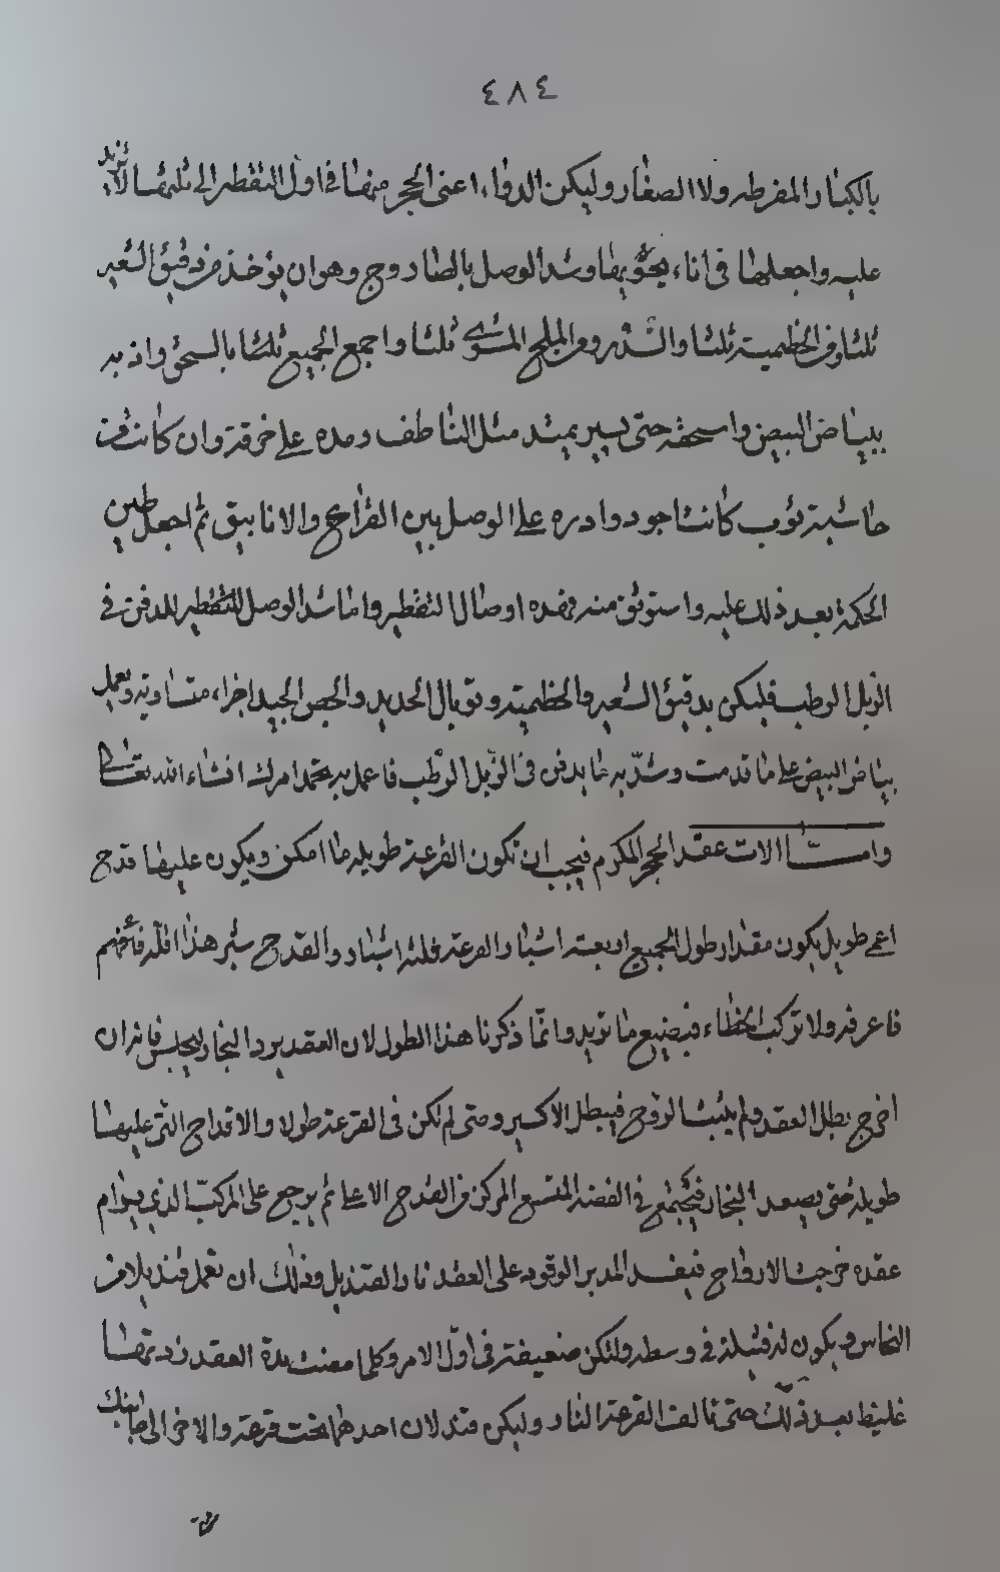 ٤٨٤
بالكبار المفرطه ولا الصغار وليكن الدواء اعنى الحجر منها فى اول التقطير الى ثلثها لا تزيد
عليه واجعلها فى اناء وشد الوصل بالطاروج وهو ان يؤخذ من دقيق الشعير
ثلثا ومن الخطمية ثلثا والملح المشوى ثلثا واجمع الجميع ثلثا بالسحق واذبه
ببياض البيض واسحقه حتى يسير يمتد مثل الناطف ومده على خرقة وان كانت من
حاشية ثوب كانت اجود وادره على الوصل بين القراع والانابيق ثم اجعل طين
الحكمة بعد ذلك عليه واستوثق منه فهذه اوصال التقطير واما شد الوصل للتقطير للدفن فى
الزبل الرطب فليكن بدقيق الشعير والخطمية وتوبال الحديد والجص الجيد اجزاء متساوية وتعمل
بياض البيض على ما قدمت وشد به ما يدفن فى الزبل الرطب فاعمل به تحمد امرك انشاء الله تعالى
واما الات عقد الحجر المكرم فيجب ان تكون القرعة طويله ما امكن ويكون عليها قدح
اعمى طويل يكون مقدار طول الجميع اربعة اشبار القرعة ثلثه اشبار والقدح شبر هذا اقله فافهم
فاعرفه ولا تركب الخطاء فيضيع ما تريد وانما ذكرنا هذا الطول لان العقد يريد البخار يحابس فانه ان
اخرج بطل العقد ولم يثبت الروح فيبطل الاكسير ومتى لم تكن فى القرعة طولا والاقداح التى عليها
طويله حتى يصعد البخار فيجتمع فى الفضه المتسع المركز من القدح الاعلى ثم يرجع على المركب الذى يرام
عقده خرجت الارواح فيفسد المدبر الوقود على العقد نار القنديل وذلك ان تعمل قنديلا من
النحاس ويكون له فتيلة فى وسطه ولتكن ضعيفة فى اول الامر وكلما مضت مدة العقد زدتها
غليظا بعد ذلك حتى تالف القرعة النار وليكن قنديلان احدهما تحت قرعة والاخر الى جانبك